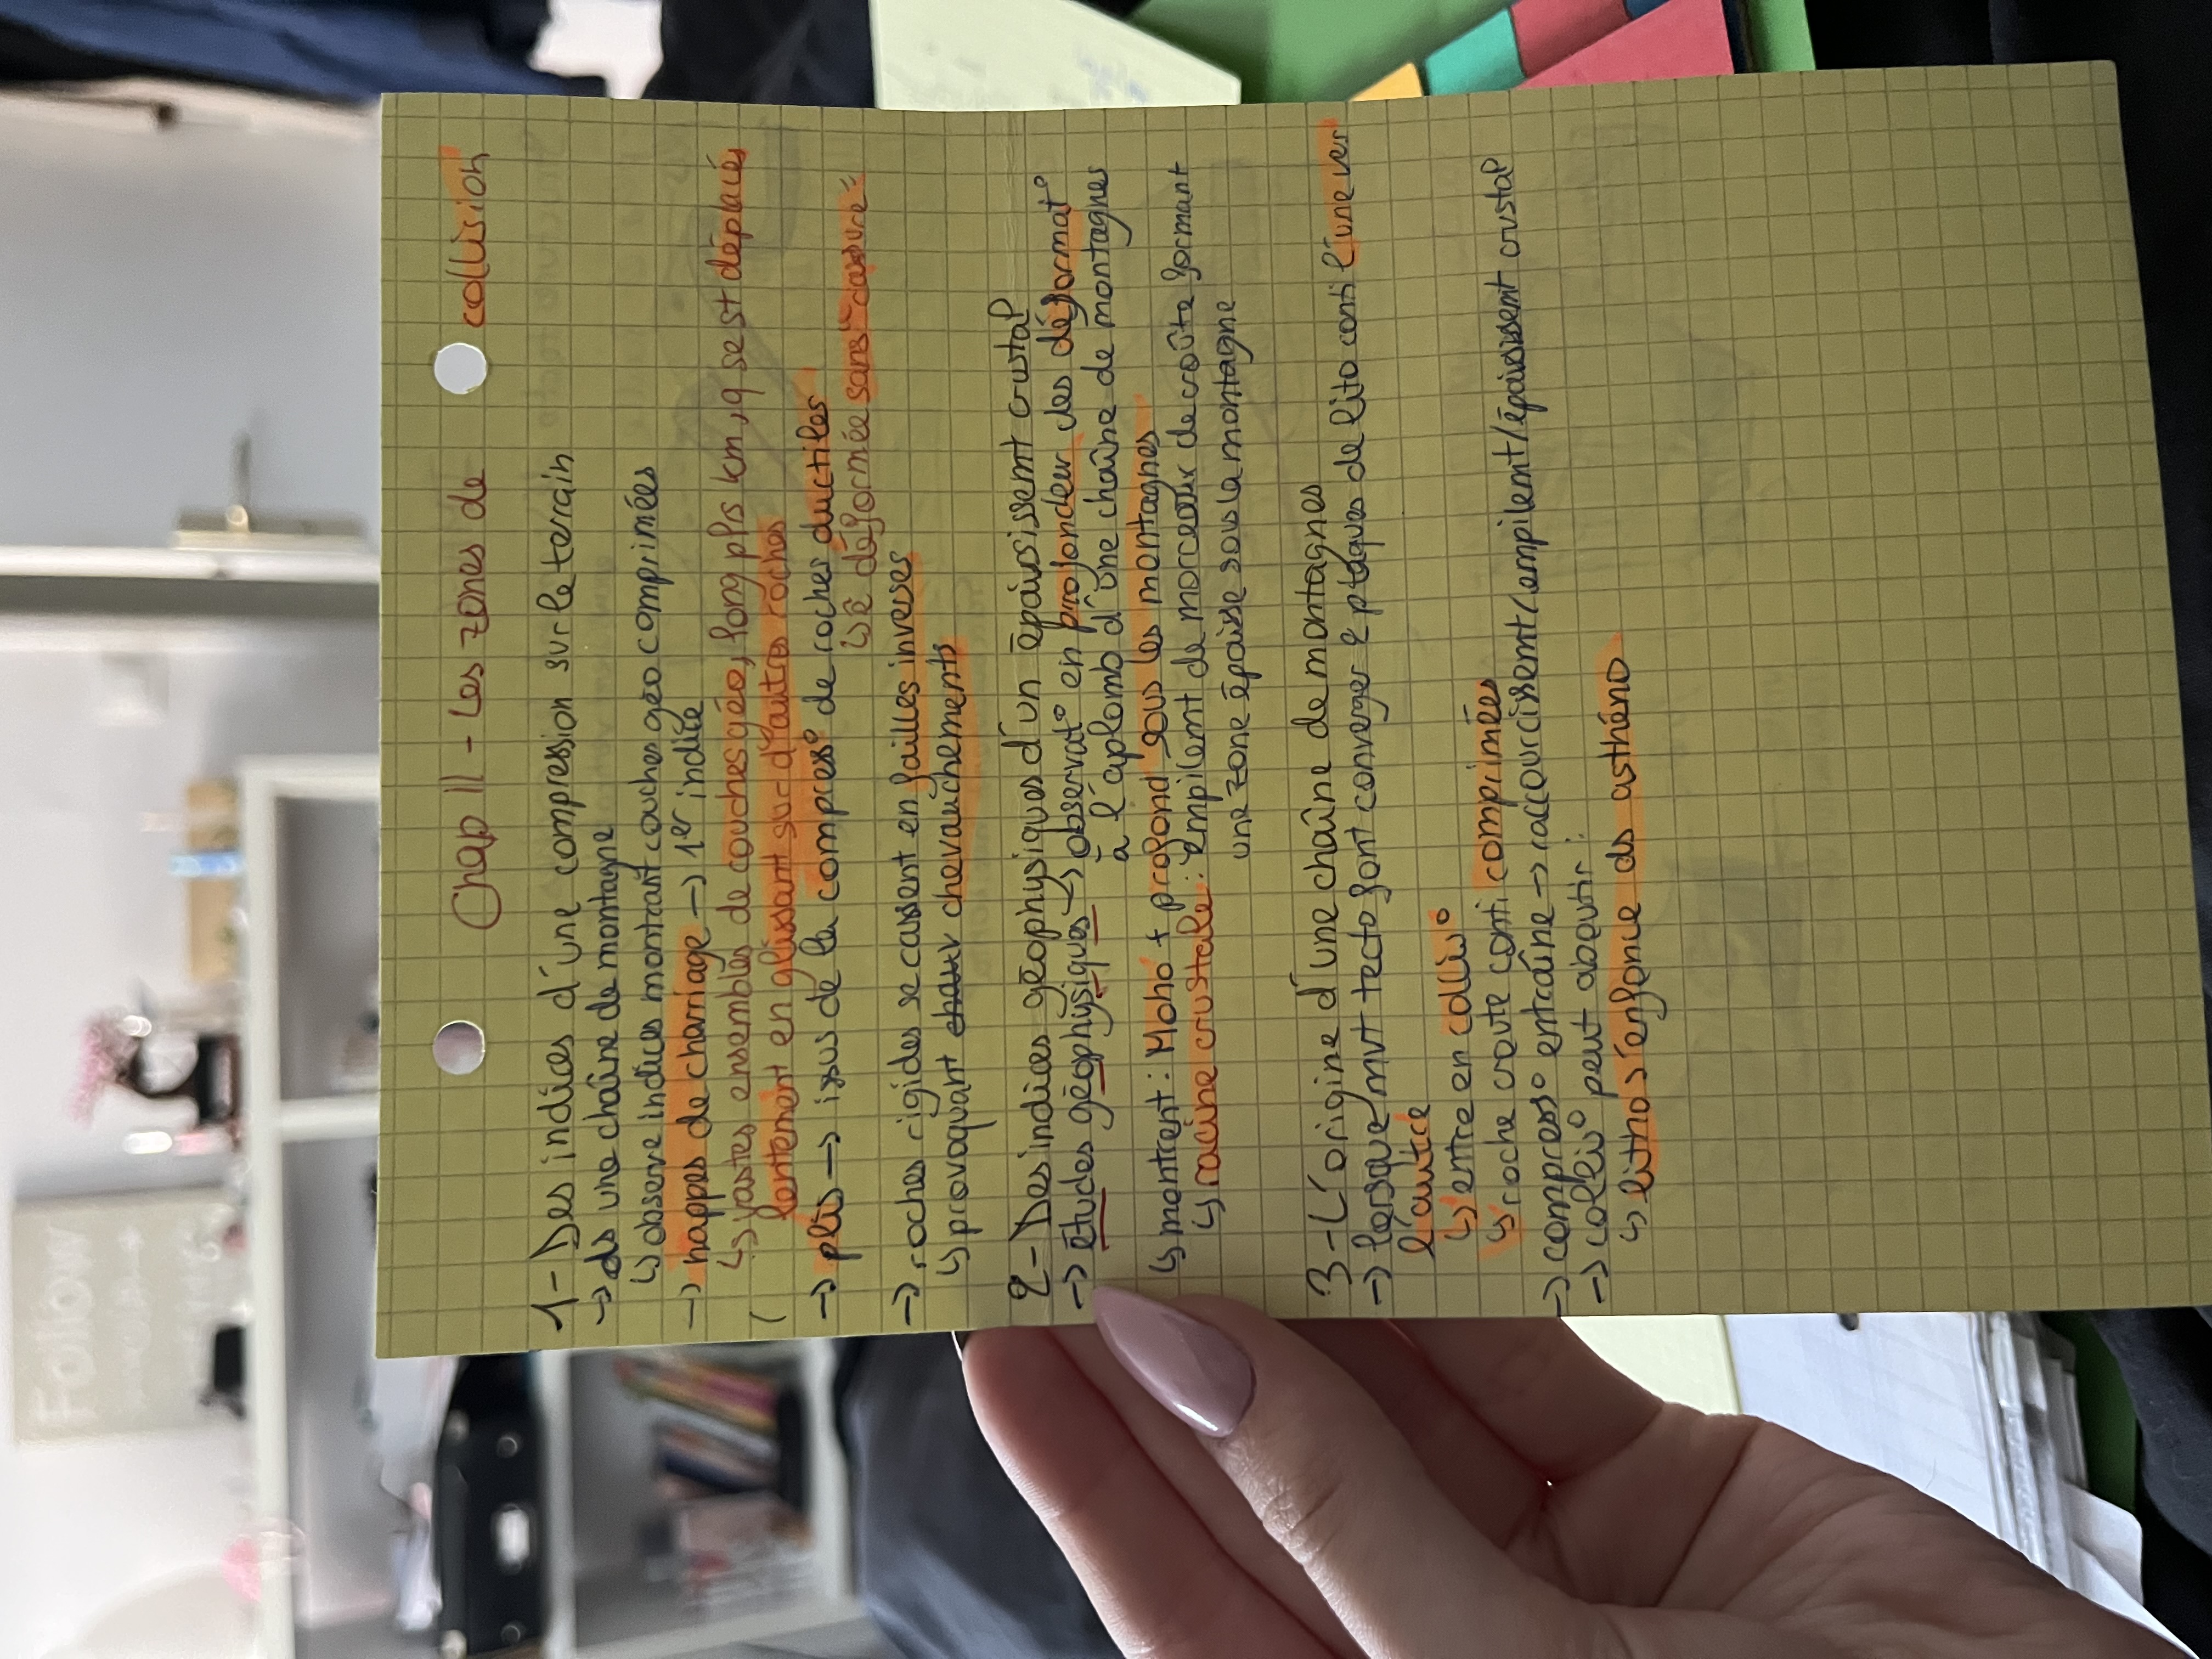 Chap 11 - Les zones de collision
1- Des indices d'une compression sur le terrain
→ ds une chaîne de montagne
↳ observe indices montrant couches géo comprimées
→ nappes de charriage → 1er indice
↳ vastes ensembles de couches géo, long plrs km, q se st déplacés
( lentement en glissant sur d'autres roches
→ plis → issus de la compres° de roches ductiles
↳ ê déformée sans cassure
→ roches rigides se cassent en failles inverses
↳ provoquant chevauchements
2- Des indices géophysiques d'un épaississemt crustal
→ études géophysiques → observat° en profondeur des déformat°
à l'aplomb d'une chaîne de montagnes
↳ montrent : Moho + profond sous les montagnes
↳ racine crustale : empilemt de morceaux de croûte formant
une zone épaisse sous la montagne
3- L'origine d'une chaîne de montagnes
→ lorsque mvt tecto font converger 2 plaques de lito conti l'une vers
l'autre
↳ entre en collis°
↳ roche croute conti comprimées
→ compress° entraîne → raccourcissemt/empilemt/épaississemt crustal
→ collis° peut aboutir :
↳ litho s'enfonce ds asthéno
Follow